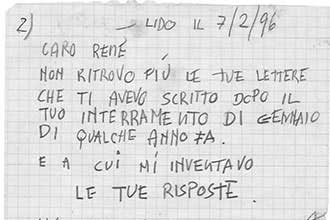 2) LIDO IL 7/2/96
CARO RENÉ
NON RITROVO PIÚ LE TUE LETTERE
CHE TI AVEVO SCRITTO DOPO IL
TUO INTERRAMENTO DI GENNAIO
DI QUALCHE ANNO FA.
E A CUI MI INVENTAVO
LE TUE RISPOSTE.